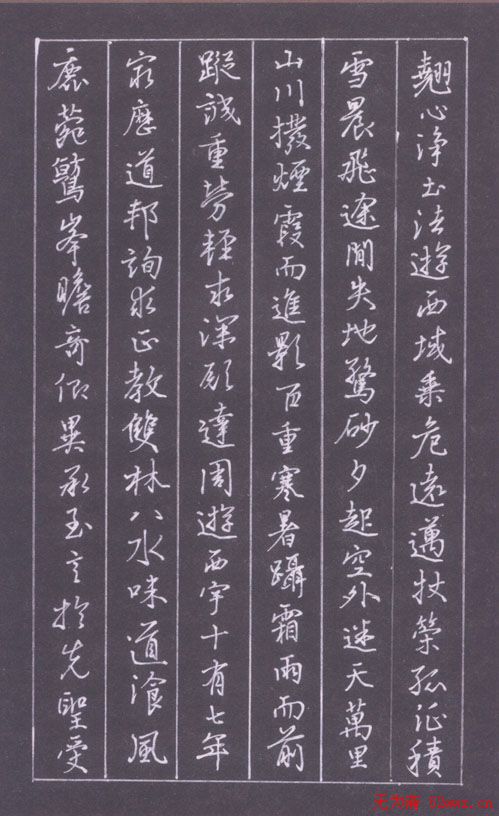 翹心淨土法遊西域乘危遠邁杖策孤征積
雪晨飛途間失地驚砂夕起空外迷天萬里
山川撥煙霞而進影百重寒暑躡霜雨而前
蹤誠重勞輕求深願達周遊西宇十有七年
窮歷道邦詢求正教雙林八水味道飡風
鹿菀鷲峯瞻奇仰異承至言於先聖受